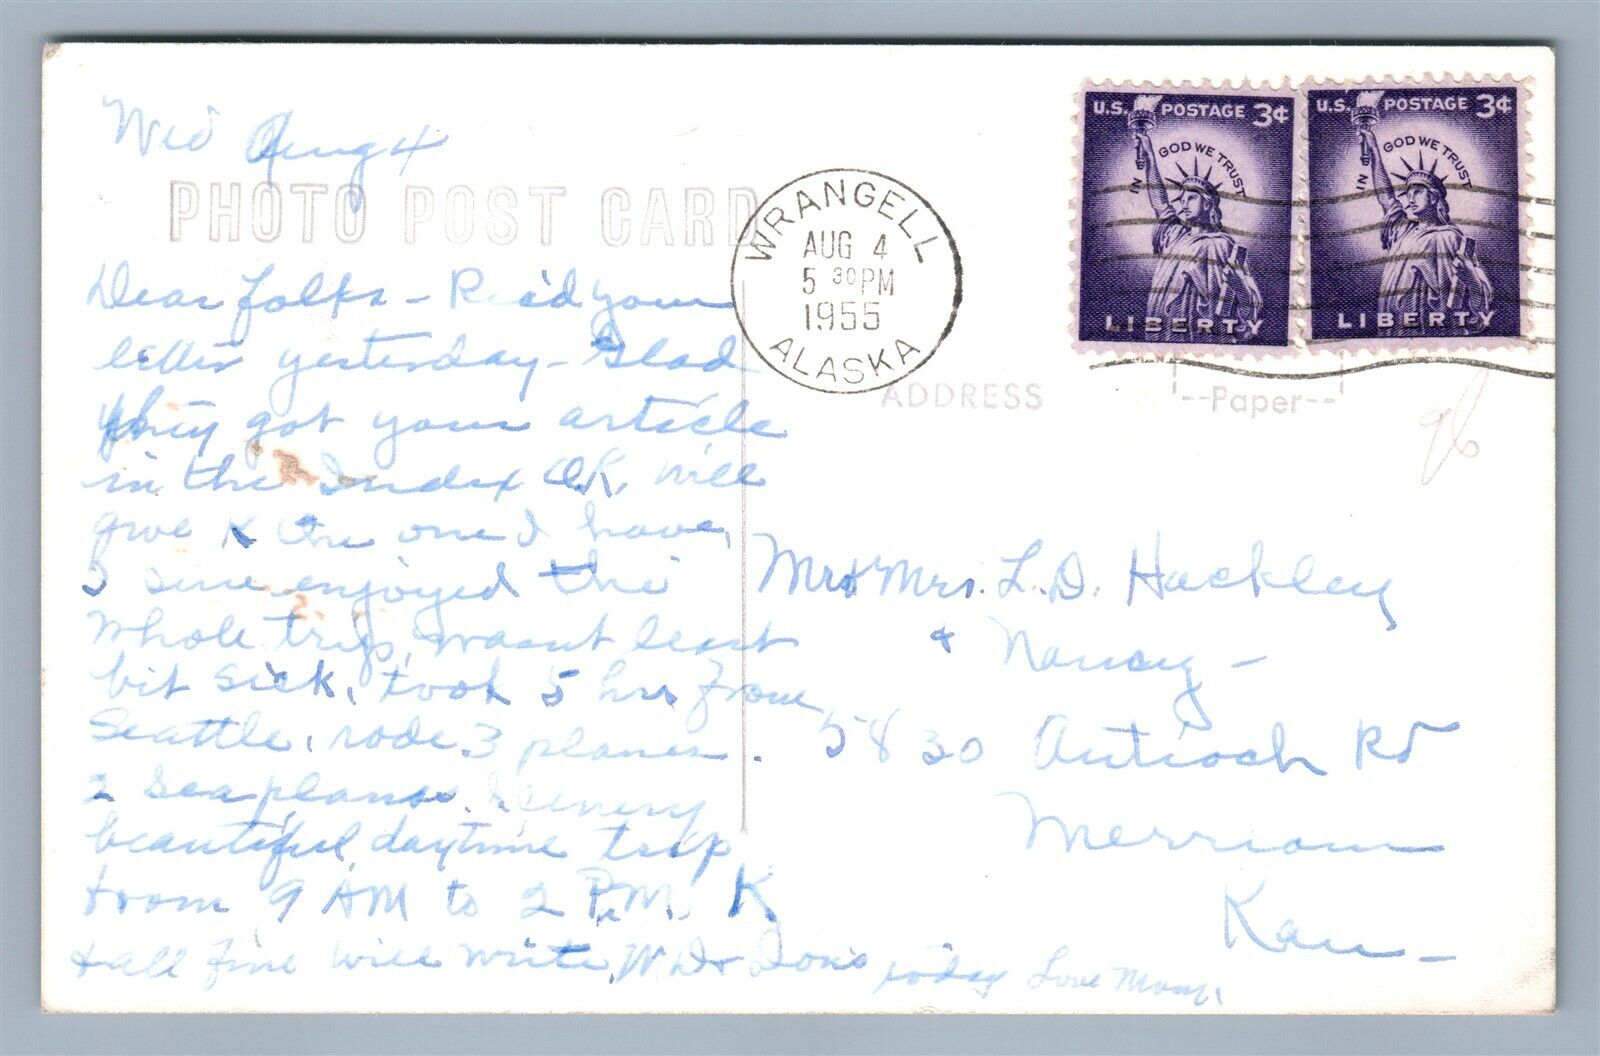 Wed Aug 4
PHOTO POST CARD
Dear folks - Rec'd your
letter yesterday - Glad
they got your article
in the Index OK, will
give K the one I have,
I sure enjoyed the
whole trip, wasnt least
bit sick, took 5 hrs from
Seattle, rode 3 planes.
2 Sea planes. Scenery
beautiful, daytime trip
from 9 AM to 2 P.M. K
& all fine will write W.D. & Don's today Love Mom.
WRANGELL
AUG 4
5 30 PM
1955
ALASKA
U.S. POSTAGE 3¢
IN GOD WE TRUST
LIBERTY
U.S. POSTAGE 3¢
IN GOD WE TRUST
LIBERTY
ADDRESS
--Paper--
96
Mr & Mrs. L.D. Hackley
& Nancy -
5830 Antioch Rd
Merriam
Kan -